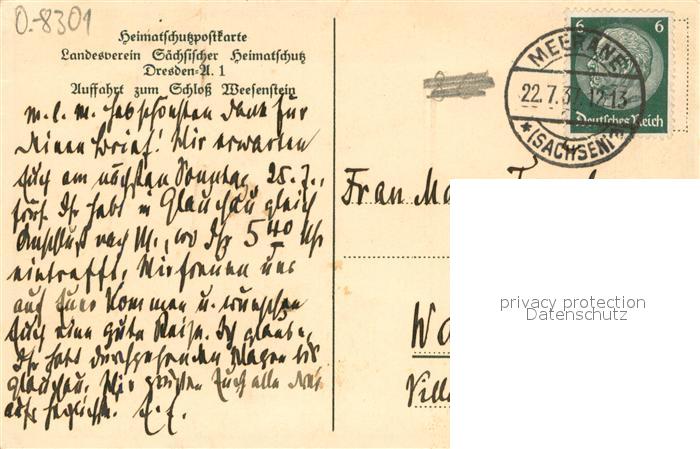 O-8301
Heimatschutzpostkarte
Landesverein Sächsischer Heimatschutz
Dresden-A. 1
Auffahrt zum Schloß Weesenstein
6 6
Deutsches Reich
MEERANE
22.7.37.12-13
* (SACHSEN)
M. l. M. hab schönsten Dank für
Deinen Brief! Wir erwarten
Euch am nächsten Sonntag, 25.7.,
Ihr habt in Glauchau gleich
Anschluß nach M., wo Ihr 5 40 Uhr
eintrefft. Wir freuen uns
auf Euer Kommen u. wünschen
Euch eine gute Reise. Ich glaube,
Ihr habt durchgehenden Wagen bis
Glauchau. Wir grüßen Euch alle
aufs herzlichste.
Frau
privacy protection
Datenschutz